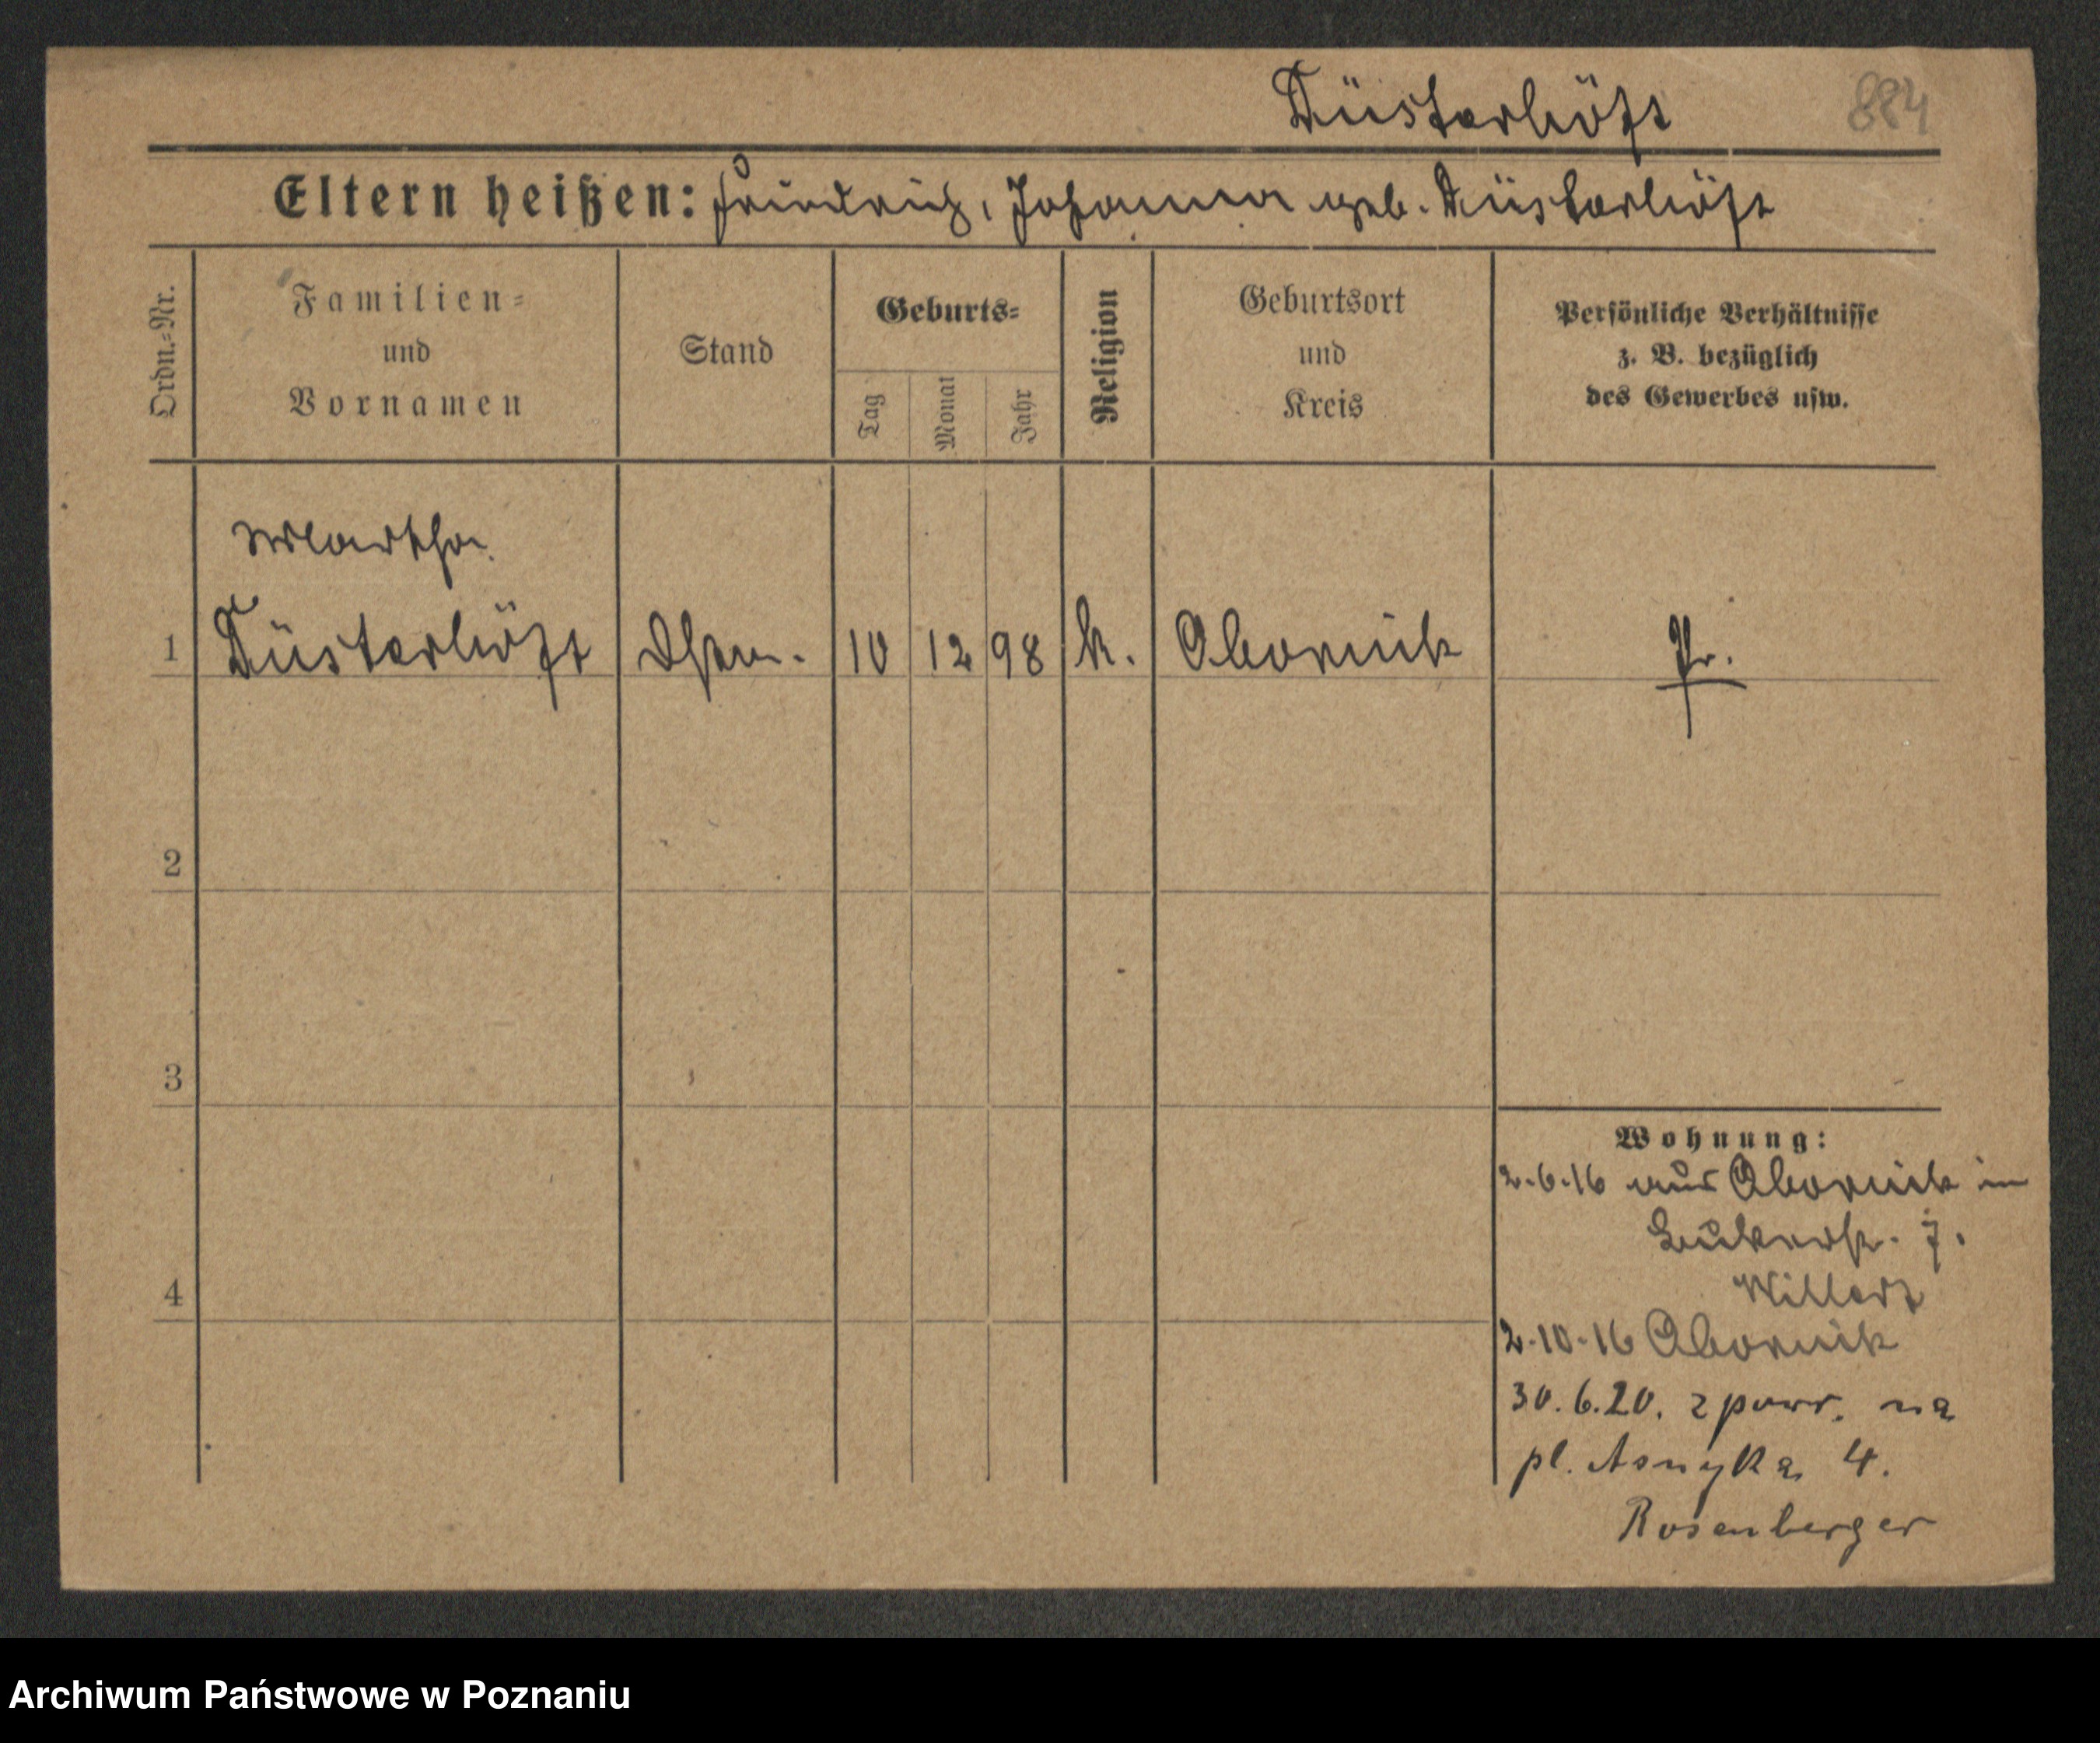 Düsterhöft 884
Eltern heißen: Friedrich, Johanna geb. Düsterhöft
Ordn.-Nr.
Familien-
und
Vornamen
Stand
Geburts-
Tag
Monat
Jahr
Religion
Geburtsort
und
Kreis
Persönliche Verhältnisse
z. B. bezüglich
des Gewerbes usw.
Martha
1 Düsterhöft 10 12 98 k. Obornik Pr.
2
3
4
Wohnung:
2.6.16 aus Obornik in
7.
Willert
2.10.16 Obornik
30.6.20. z powr. na
pl. Asnyka 4.
Rosenberger
Archiwum Państwowe w Poznaniu